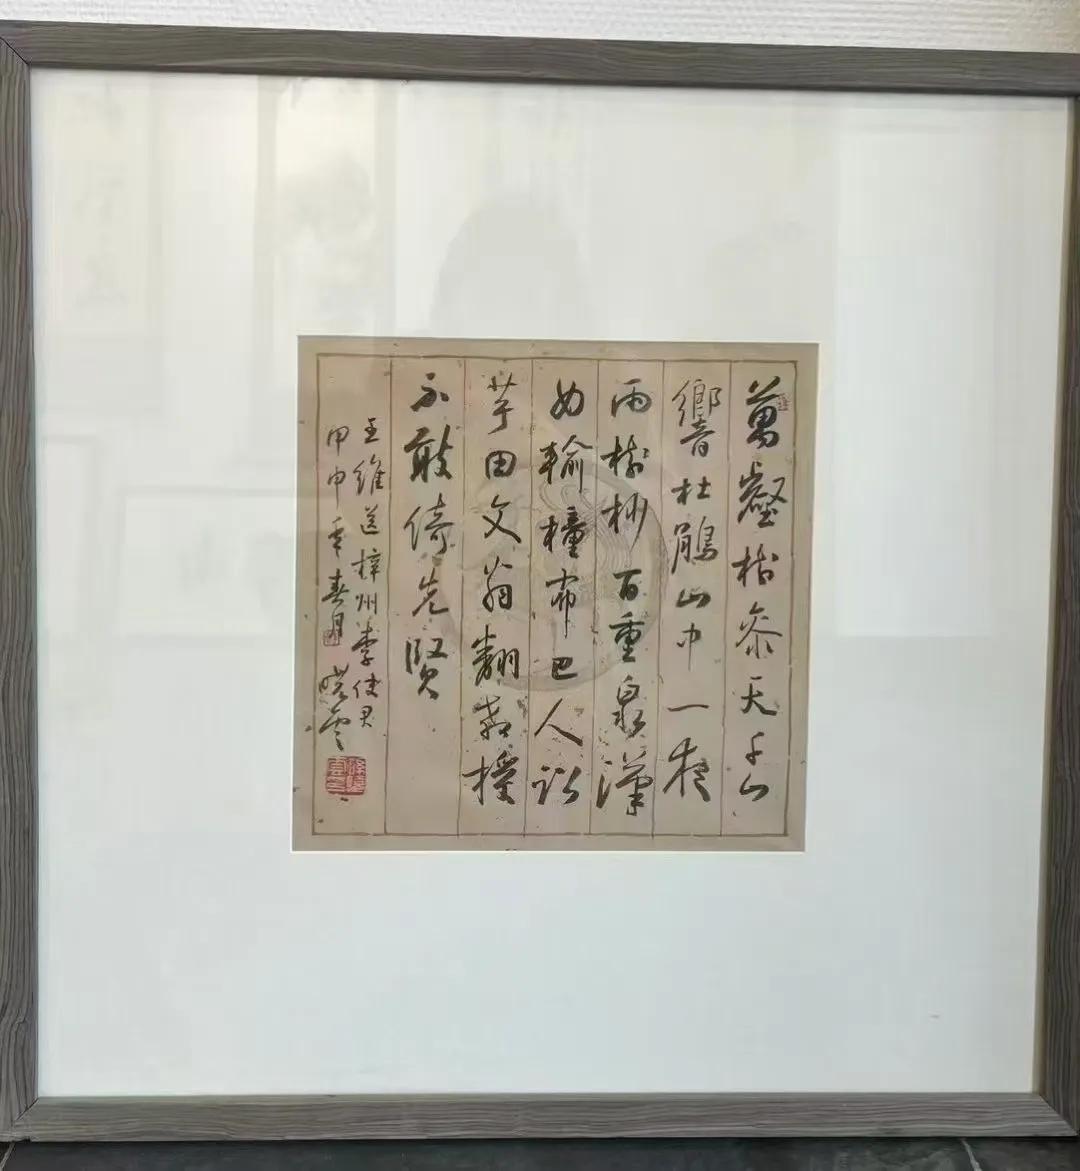 萬壑樹參天千山
響杜鵑山中一夜
雨樹杪百重泉漢
女輸橦布巴人訟
芋田文翁翻教授
不敢倚先賢
王維送梓州李使君
甲申年春月 曉雲